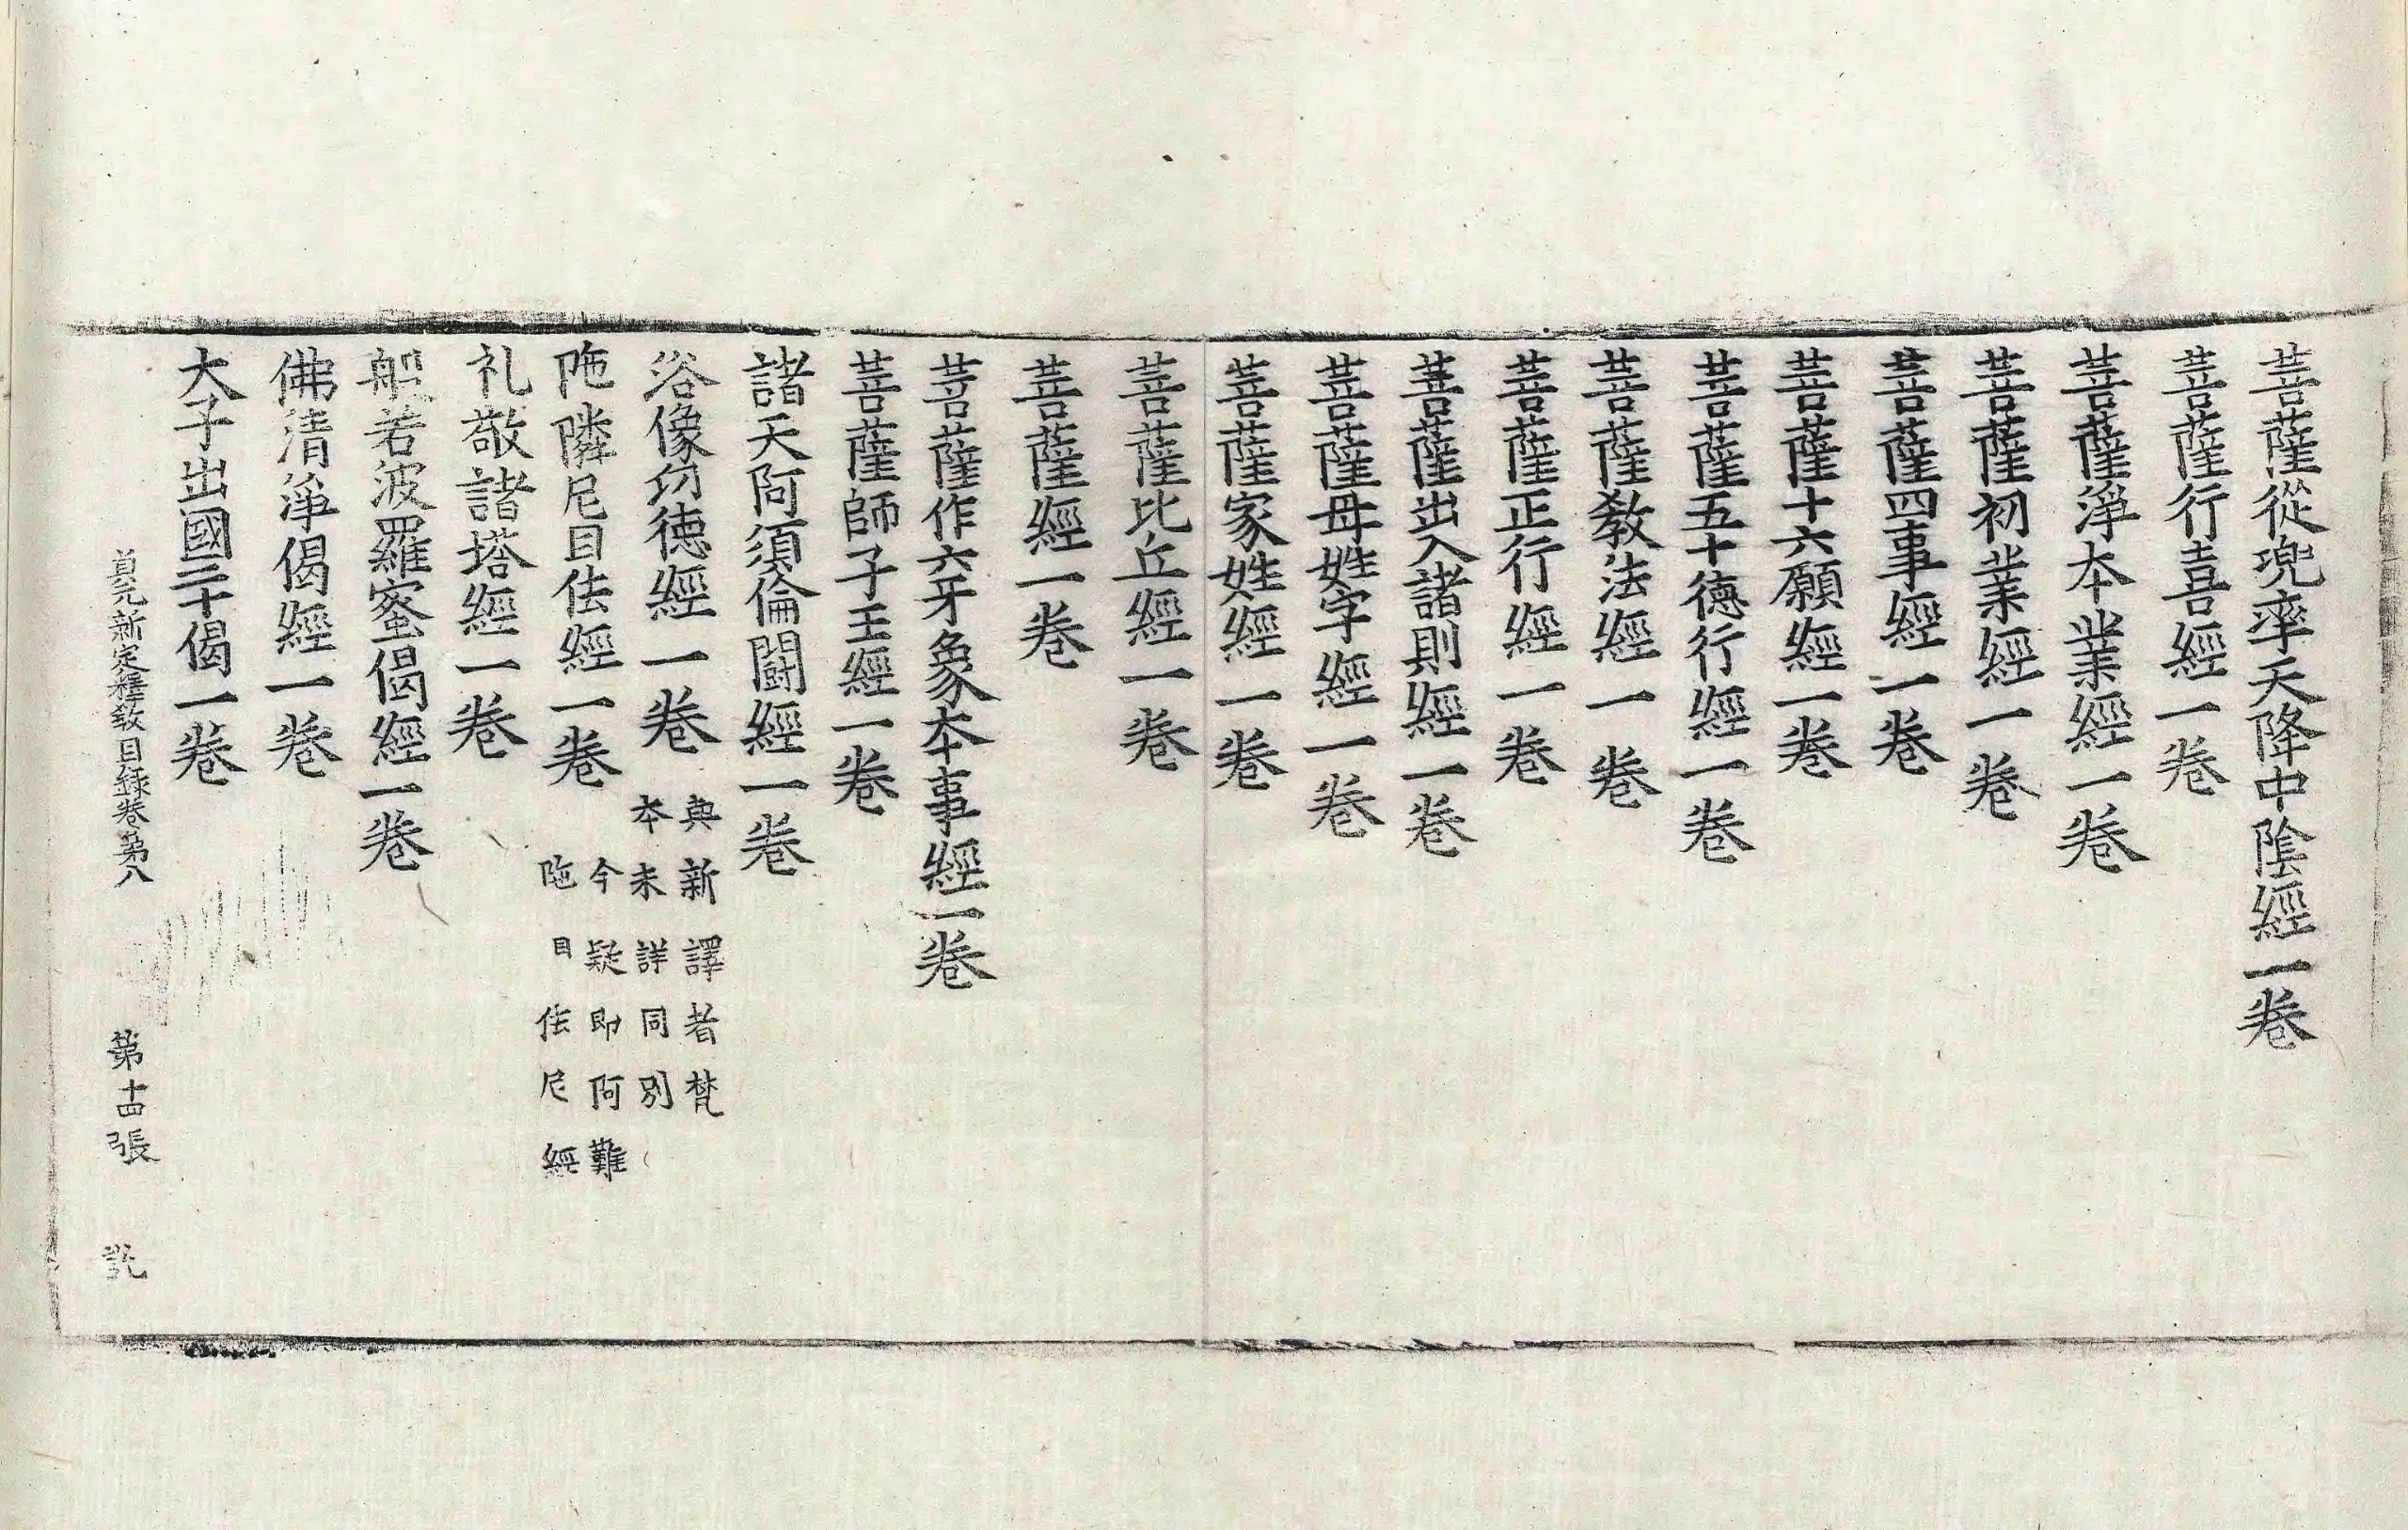 菩薩從兜率天降中陰經一卷
菩薩行喜經一卷
菩薩淨本業經一卷
菩薩初業經一卷
菩薩四事經一卷
菩薩十六願經一卷
菩薩五十德行經一卷
菩薩敎法經一卷
菩薩正行經一卷
菩薩出入諸則經一卷
菩薩母姓字經一卷
菩薩家姓經一卷
菩薩比丘經一卷
菩薩經一卷
菩薩作六牙象本事經一卷
菩薩師子王經一卷
諸天阿須倫鬪經一卷
浴像功德經一卷 與新譯者梵
本未詳同別
陁隣尼目佉經一卷 今疑即阿難
陁目佉尼經
礼敬諸塔經一卷
般若波羅蜜偈經一卷
佛清淨偈經一卷
大子出國二十偈一卷
貞元新定釋敎目録卷第八 第十四張